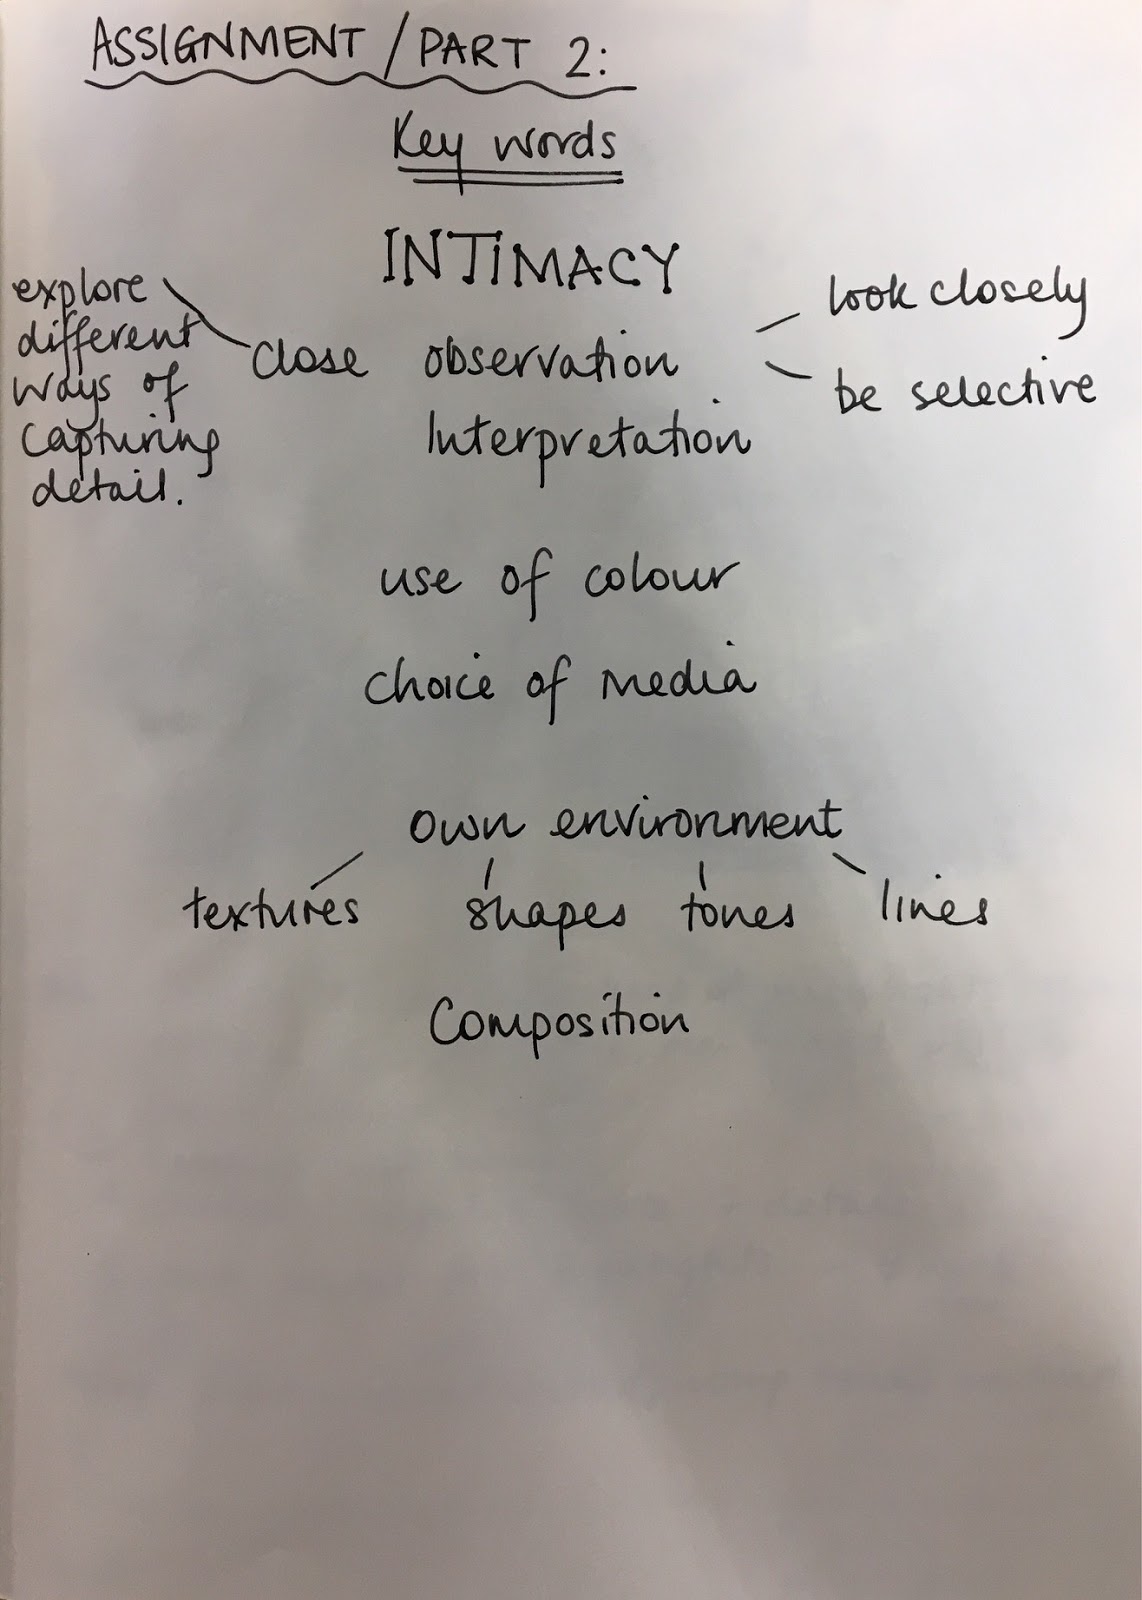 ASSIGNMENT / PART 2:
Key words
INTIMACY
explore
different
ways of
capturing
detail.
close observation
look closely
be selective
Interpretation
use of colour
choice of media
own environment
textures shapes tones lines
Composition